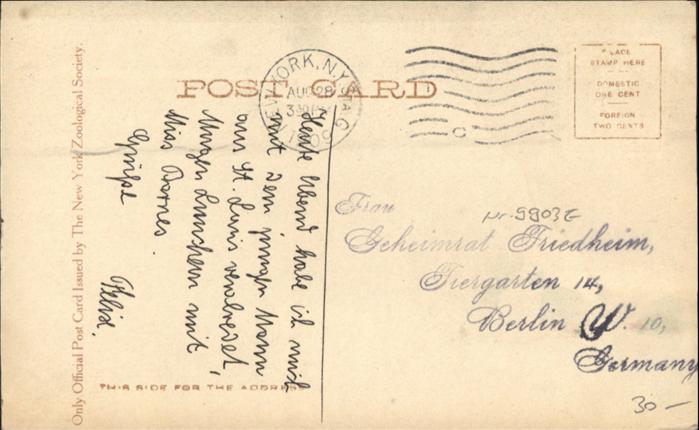 Only Official Post Card Issued by The New York Zoological Society.
POST CARD
NEW YORK, N.Y. STA. G
AUG 28
330 PM
1909
PLACE
STAMP HERE
DOMESTIC
ONE CENT
FOREIGN
TWO CENTS
Heute Abend habe ich mich
mit dem jungen Mann
aus St. Louis verabredet,
Morgen Lunchen mit
Miss Barnes.
Grüße
Felix.
Frau
nr. 5903E
Geheimrat Friedheim,
Tiergarten 14,
Berlin W. 10,
Germany
THIS SIDE FOR THE ADDRESS
30 —